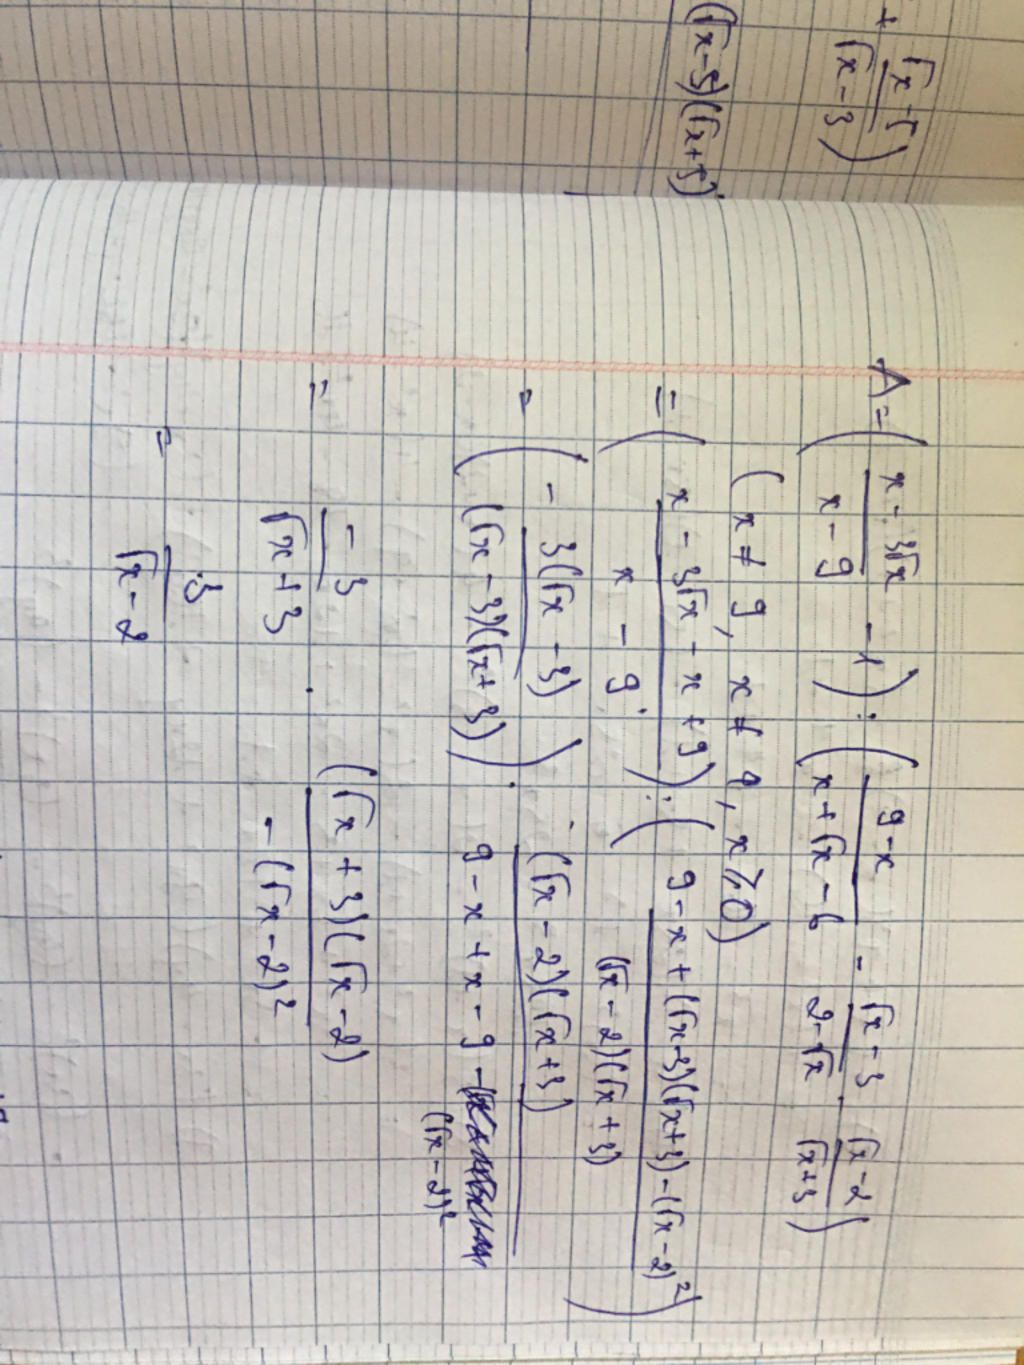 + \frac{\sqrt{x}-5}{\sqrt{x}-3})
(\sqrt{x}-5)(\sqrt{x}+5)
A = (\frac{x-3\sqrt{x}}{x-9} - 1) : (\frac{9-x}{x+\sqrt{x}-6} - \frac{\sqrt{x}-3}{2-\sqrt{x}} . \frac{\sqrt{x}-2}{\sqrt{x}+3})
(x ≠ 9, x ≠ 4, x ⩾ 0)
= (\frac{x-3\sqrt{x}-x+9}{x-9}) : (\frac{9-x+(\sqrt{x}-3)(\sqrt{x}+3)-(\sqrt{x}-2)^2}{(\sqrt{x}-2)(\sqrt{x}+3)})
= (\frac{-3(\sqrt{x}-3)}{(\sqrt{x}-3)(\sqrt{x}+3)}) . \frac{(\sqrt{x}-2)(\sqrt{x}+3)}{9-x+x-9-(\sqrt{x}-2)^2}
= \frac{-3}{\sqrt{x}+3} . \frac{(\sqrt{x}+3)(\sqrt{x}-2)}{-(\sqrt{x}-2)^2}
= \frac{3}{\sqrt{x}-2}